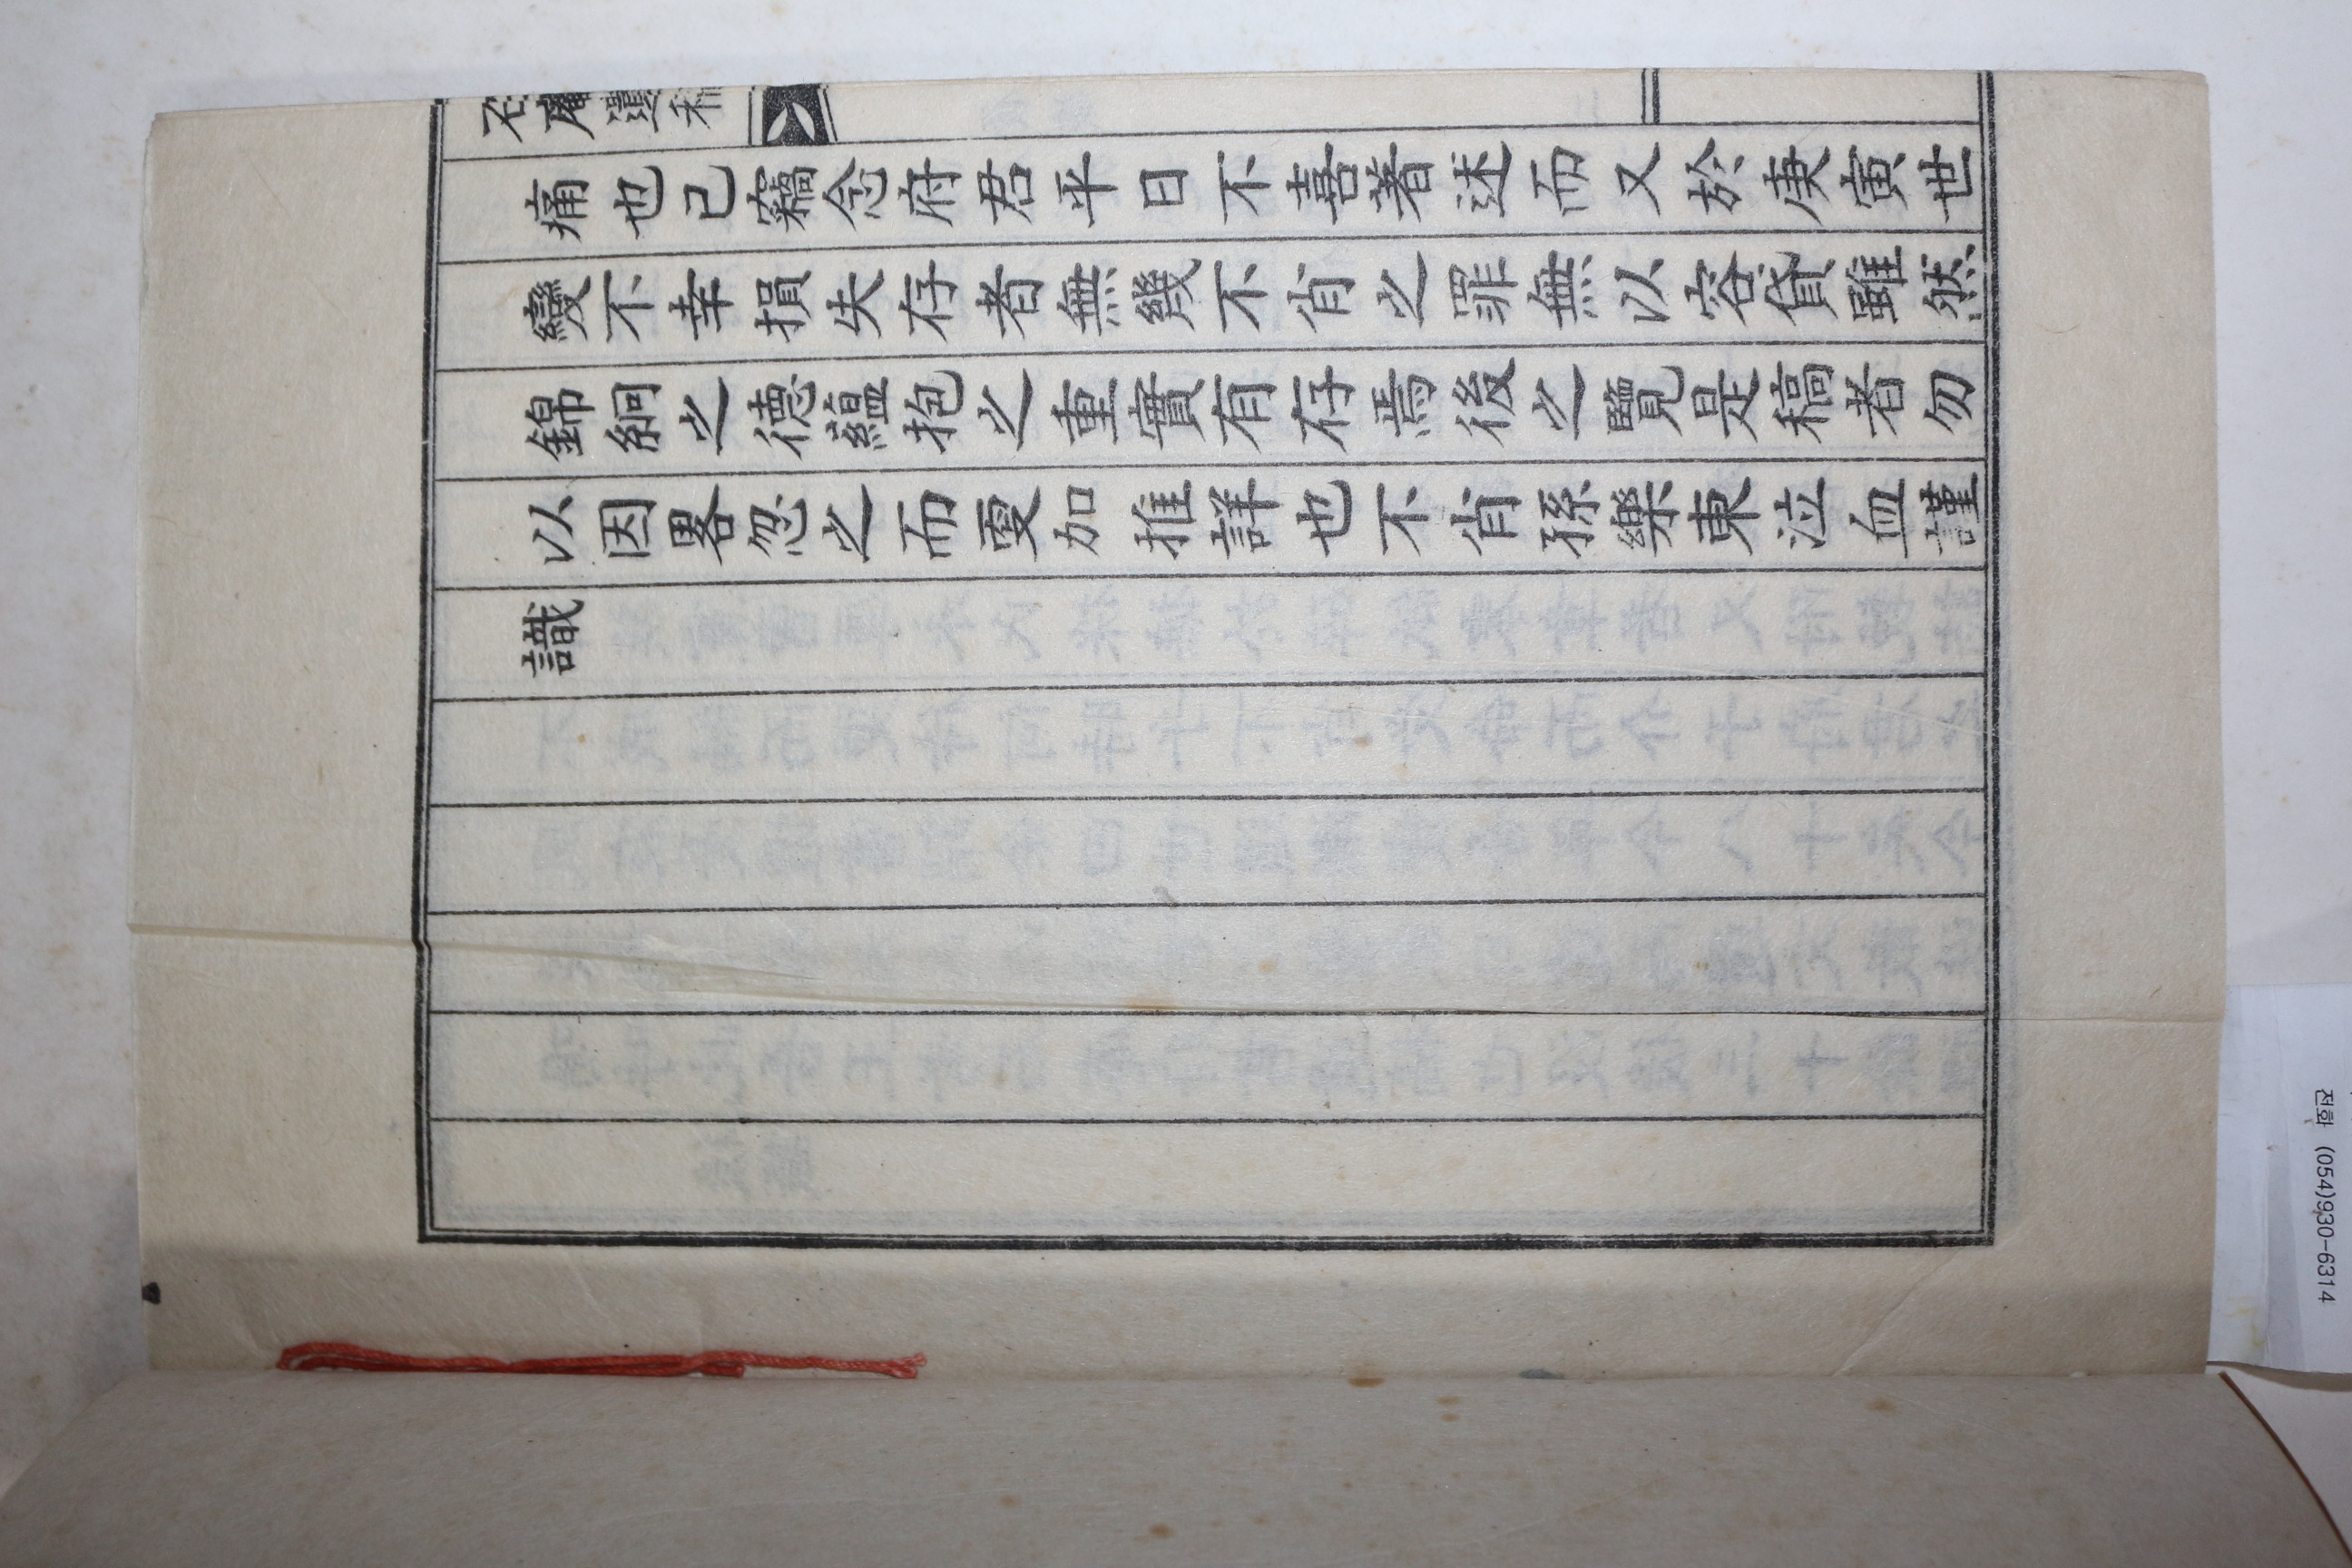 石庵遺稿
痛也已竊念府君平日不喜著述而又於庚寅世
變不幸損失存者無幾不肖之罪無以容貸雖然
錦絅之德蘊抱之重實有存焉後之覽是稿者勿
以因畧忽之而更加推詳也不肖孫樂東泣血謹
識
전화 (054)930-6314